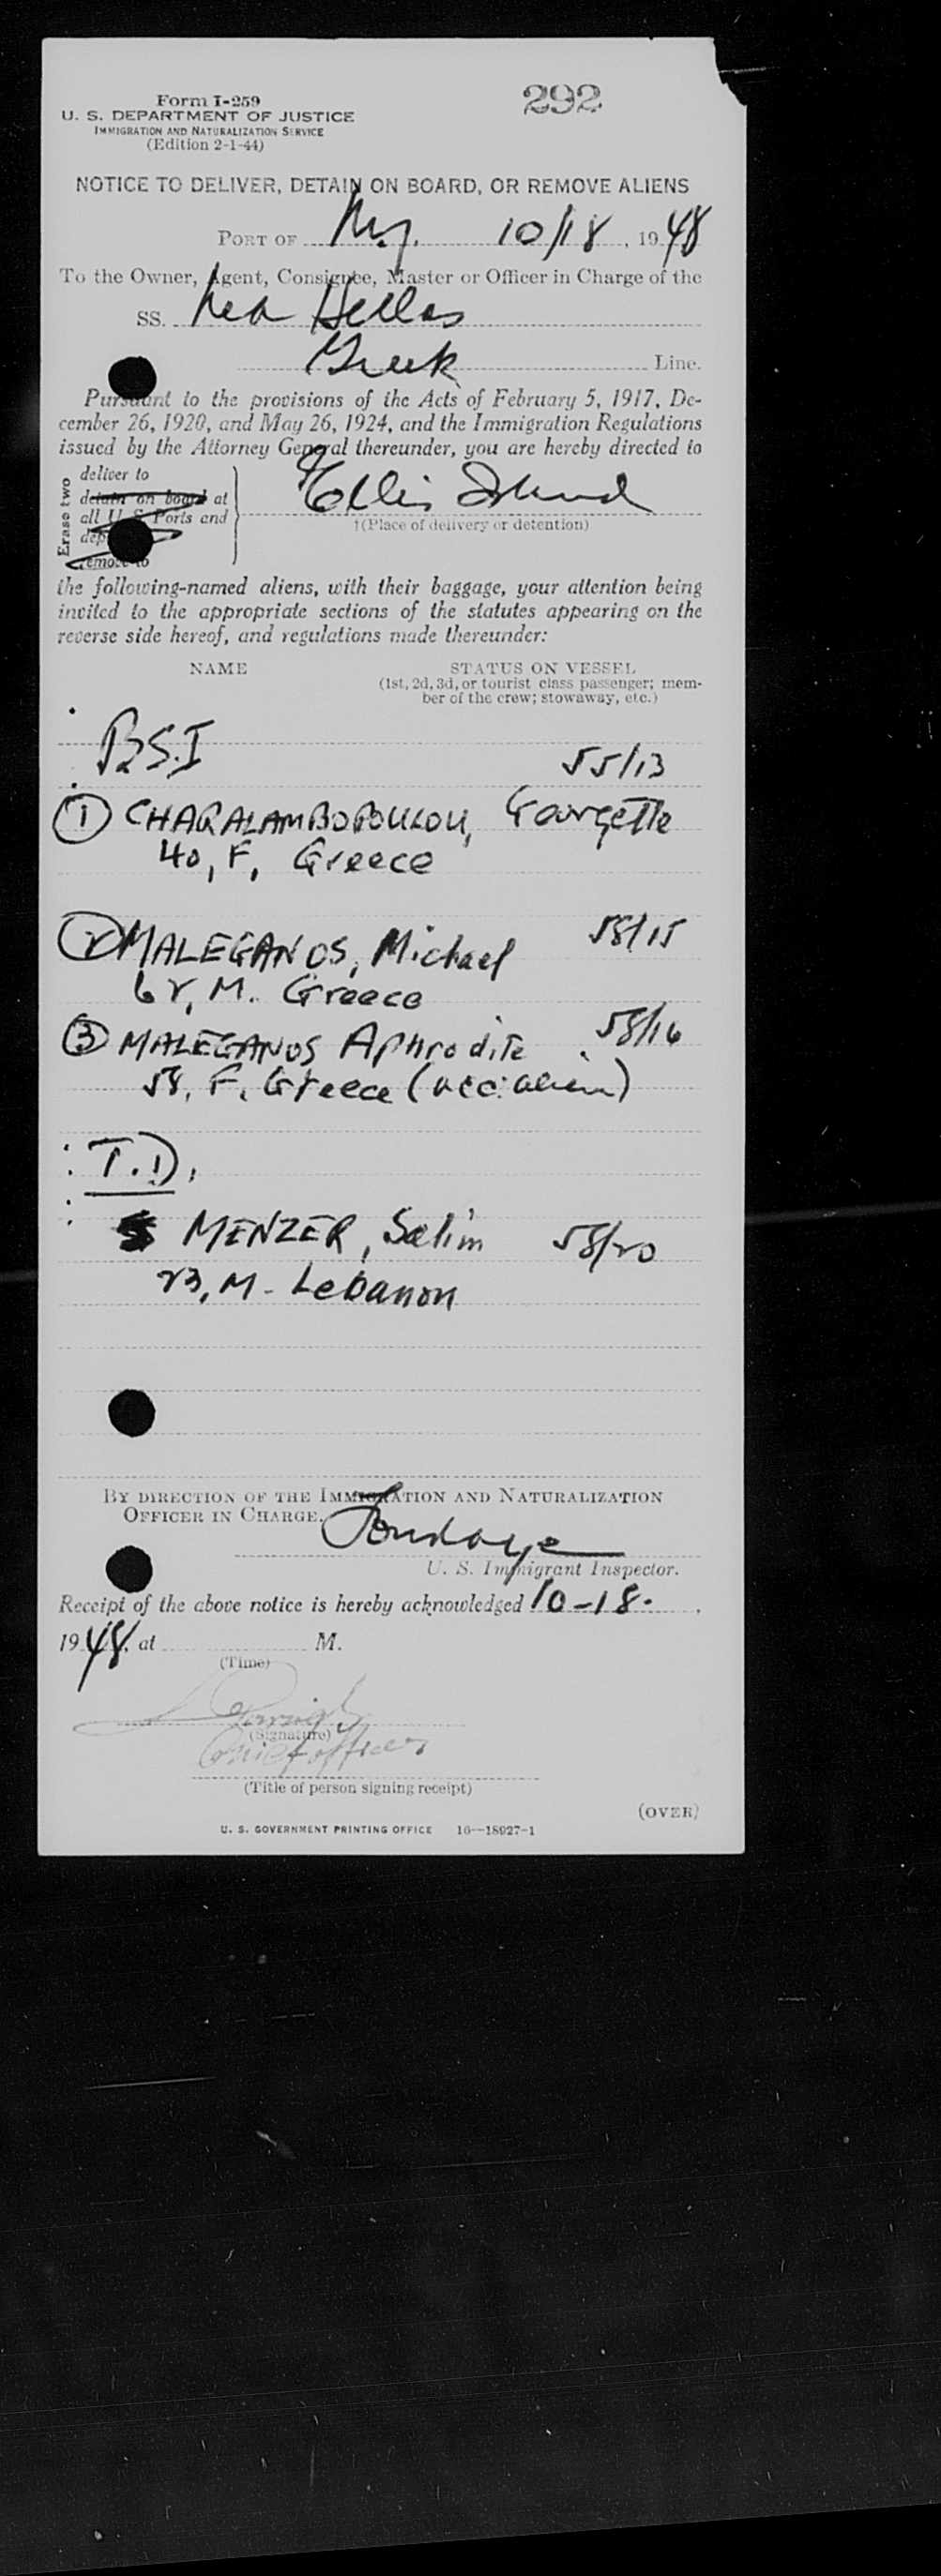 292
Form I-259
U. S. DEPARTMENT OF JUSTICE
IMMIGRATION AND NATURALIZATION SERVICE
(Edition 2-1-44)
NOTICE TO DELIVER, DETAIN ON BOARD, OR REMOVE ALIENS
PORT OF N.Y. 10/18, 1948
To the Owner, Agent, Consignee, Master or Officer in Charge of the
SS. Nea Hellas
Greek Line.
Pursuant to the provisions of the Acts of February 5, 1917, De-
cember 26, 1920, and May 26, 1924, and the Immigration Regulations
issued by the Attorney General thereunder, you are hereby directed to
Erase two
deliver to
detain on board at
all U S Ports and
dep
remove to
Ellis Island
†(Place of delivery or detention)
the following-named aliens, with their baggage, your attention being
invited to the appropriate sections of the statutes appearing on the
reverse side hereof, and regulations made thereunder:
NAME STATUS ON VESSEL
(1st, 2d, 3d, or tourist class passenger; mem-
ber of the crew; stowaway, etc.)
B.S.I
55/13
① CHARALAMBOPOULOU, Georgette
40, F, Greece
② MALEGANOS, Michael 58/15
62, M. Greece
③ MALEGANOS Aphrodite 58/16
58, F. Greece (acc. alien)
T.D.
MENZER, Salim 58/20
23, M - Lebanon
BY DIRECTION OF THE IMMIGRATION AND NATURALIZATION
OFFICER IN CHARGE.
U. S. Immigrant Inspector.
Receipt of the above notice is hereby acknowledged 10-18-,
1948, at M.
(Time)
(Signature)
Chief officer
(Title of person signing receipt)
(OVER)
U. S. GOVERNMENT PRINTING OFFICE 16—18027-1